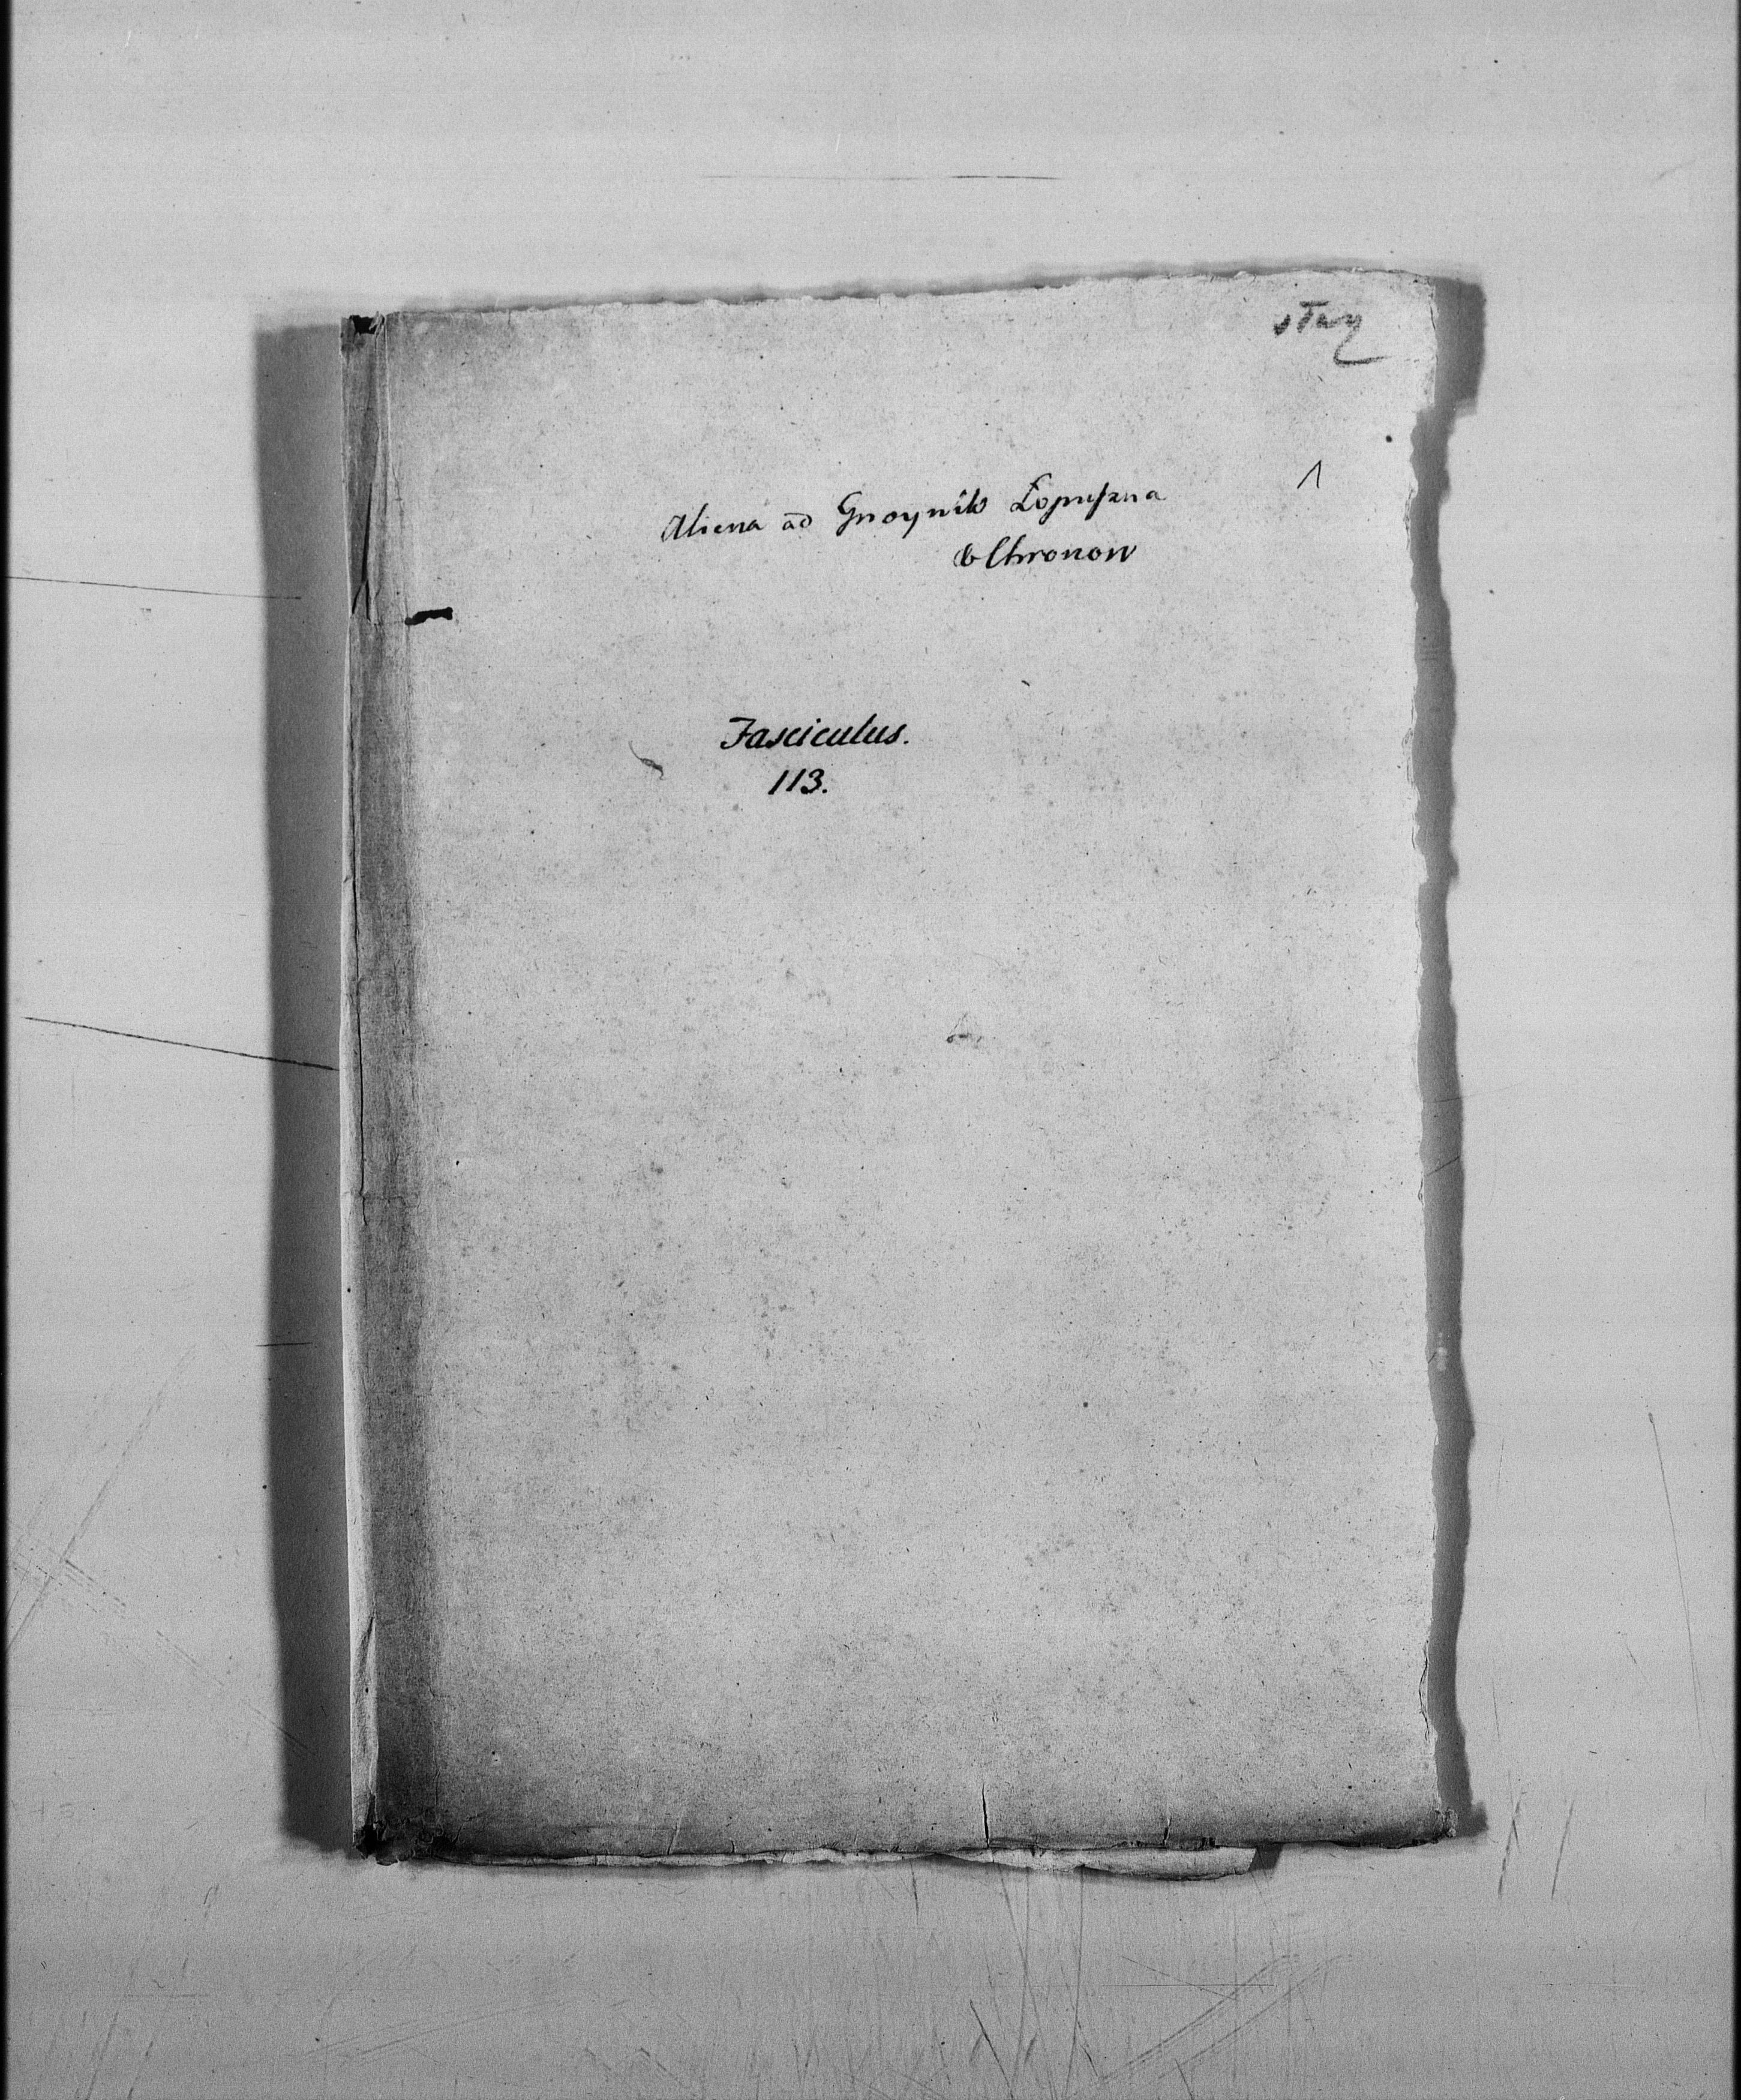 1
Aliena ad Gnoynik Łopuszna
& Chronow
Fasciculus.
113.